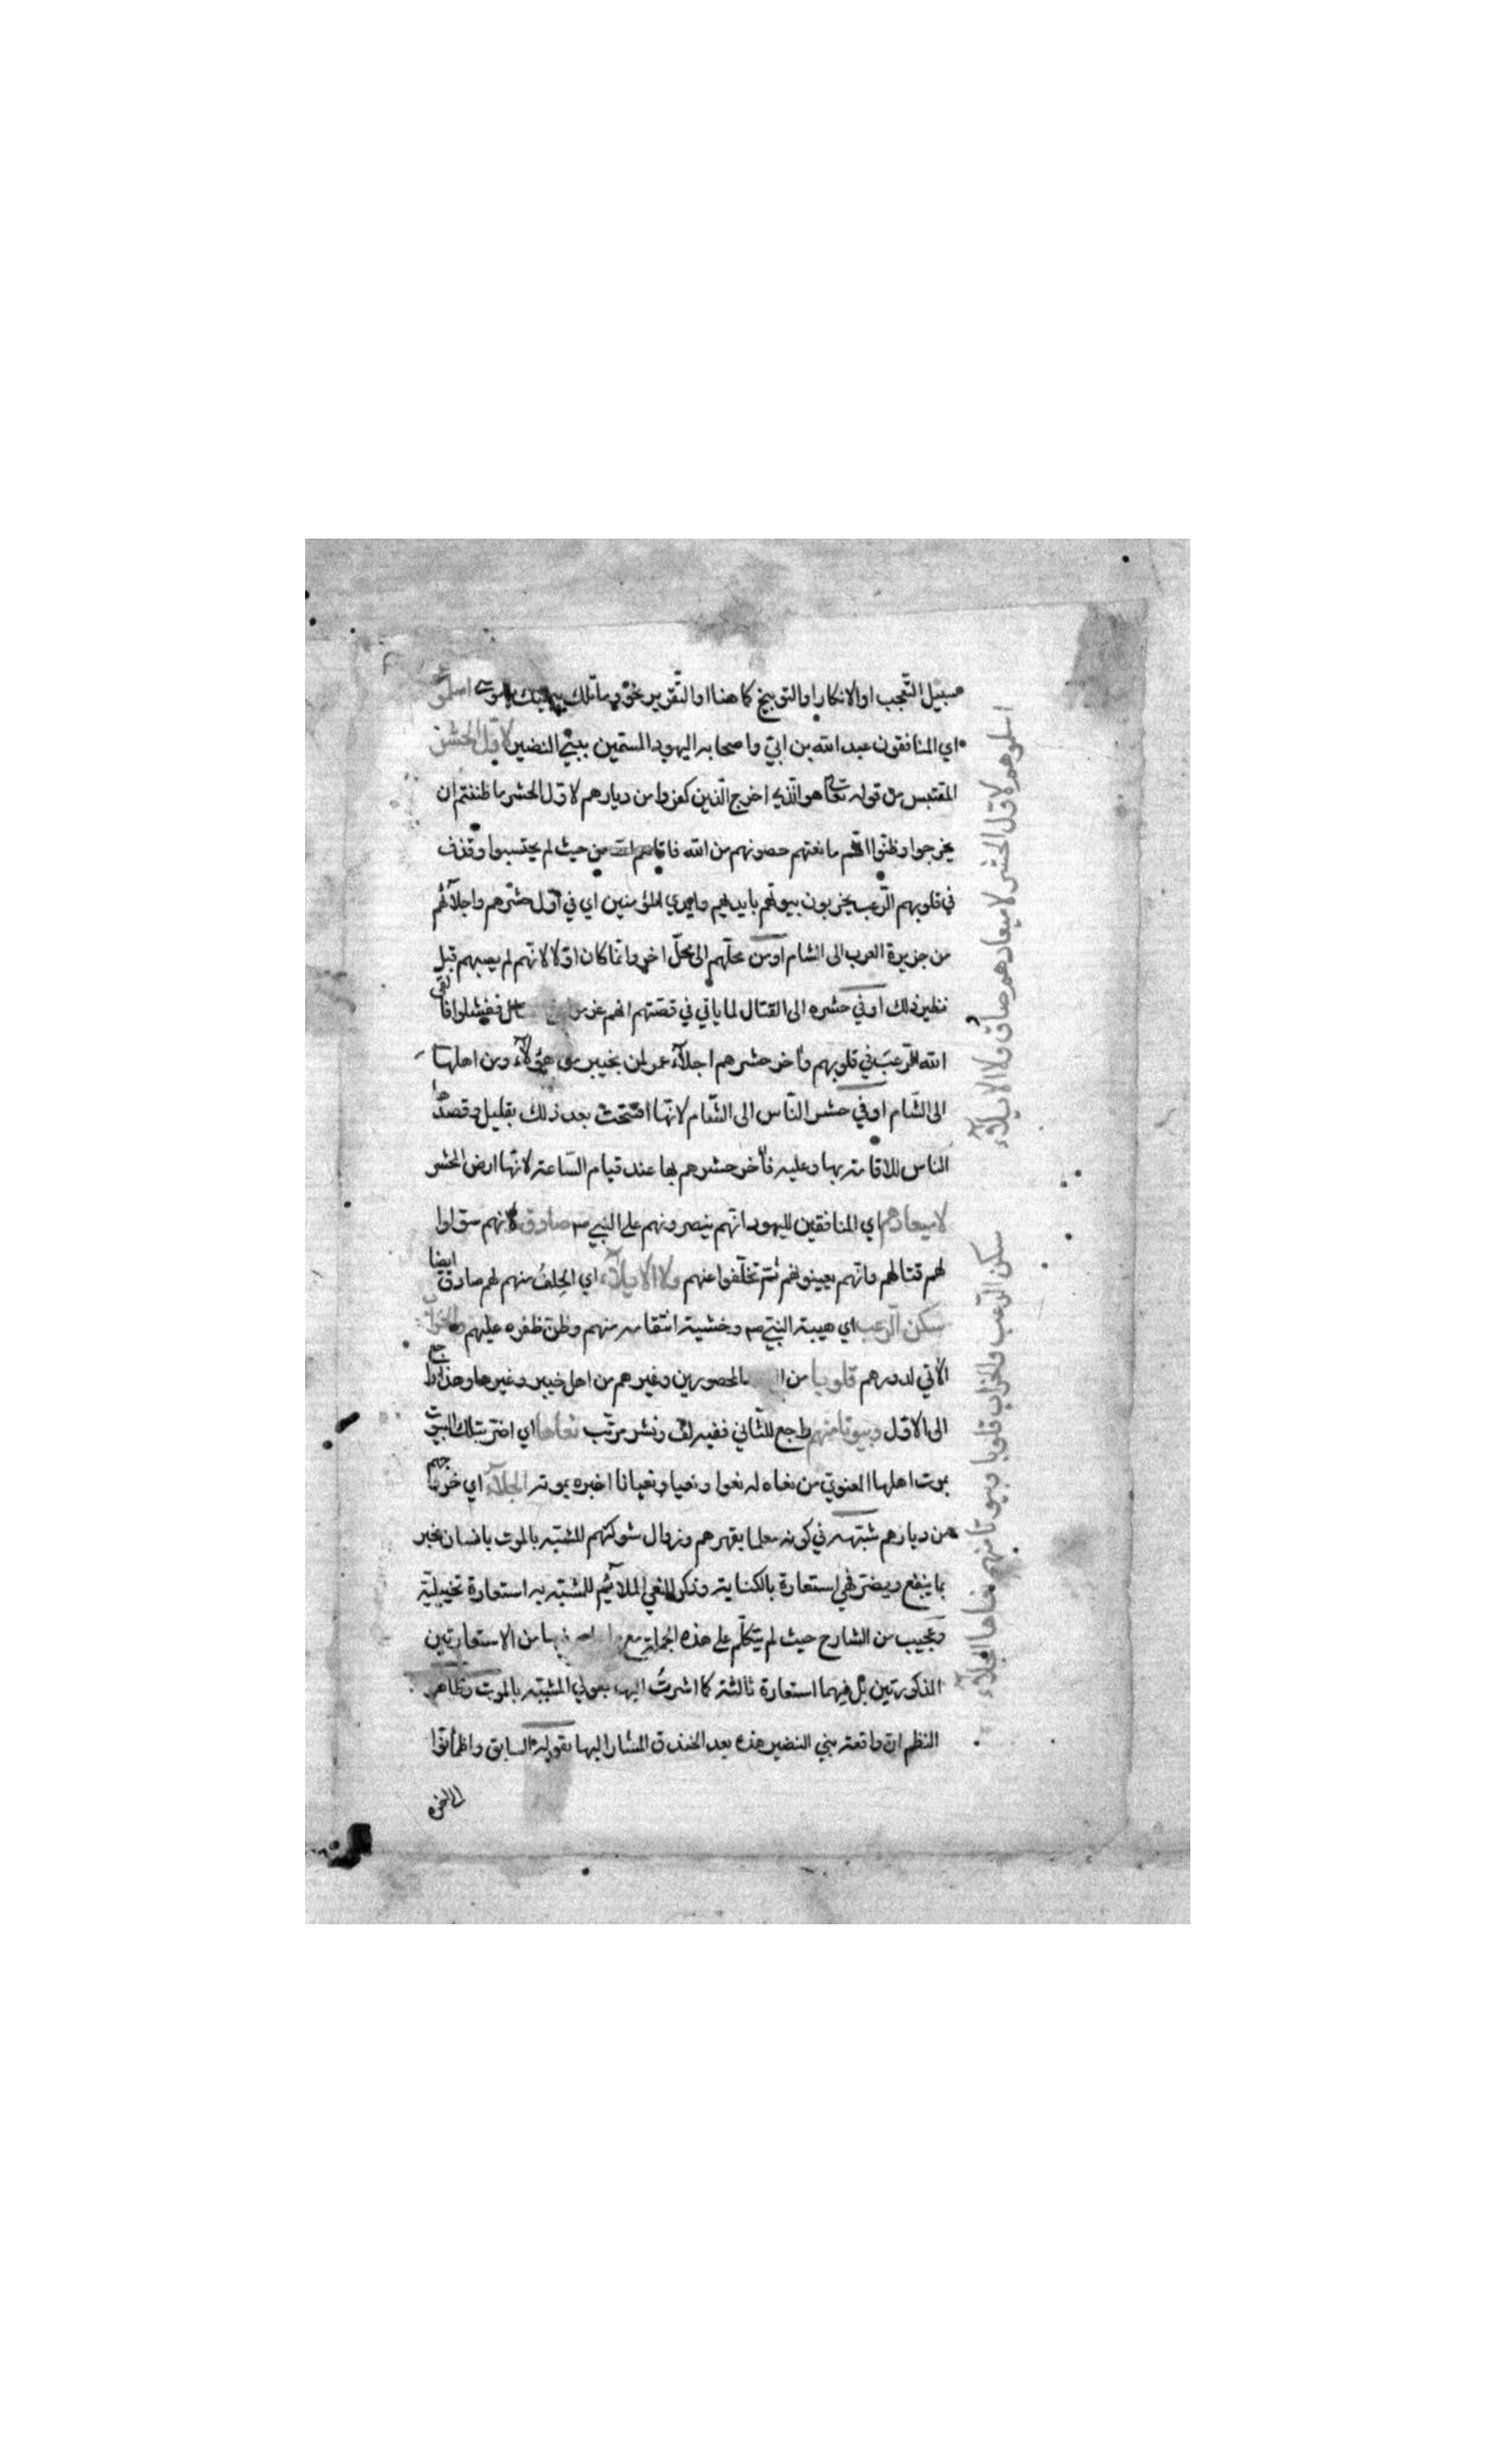 سبيل التّعجب او الانكار او التوبيخ كما هنا او التّقرير نحو وما تلك بيمينك يا موسى اسلمو
اي المنافقون عبد الله بن ابيّ واصحابه اليهود المسمّين ببني النضير لاوّل الحشر
المقتبس من قوله تعالى هو الّذي اخرج الّذين كفروا من ديارهم لاوّل الحشر ما ظننتم ان
يخرجوا وظنّوا انّهم مانعتهم حصونهم من الله فاتاهم الله من حيث لم يحتسبوا وقذف
في قلوبهم الرّعب يخربون بيوتهم بايديهم وايدي المؤمنين اي في اوّل حشرهم واجلآئهم
من جزيرة العرب الى الشام او من محلّهم الى محلّ اخر وانّما كان اوّلا لانّهم لم يصبهم قبل
نظير ذلك او في حشره الى القتال لما ياتي في قصّتهم انهم ففشلوا فالقى
الله الرّعب في قلوبهم وآخر حشرهم اجلآء عمر لمن بخيبر من هؤلآء ومن اهلها
الى الشّام او في حشر النّاس الى الشّام لانّها افتتحت بعد ذلك بقليل وقصدها
الناس للاقامة بها وعليه فآخر حشرهم بها عند قيام السّاعة لانّها ارض المحشر
لا ميعادهم اي المنافقين لليهود انّهم ينصرونهم على النبي صم صادق لانهم سوّلوا
لهم قتالهم وانّهم يعينونهم ثم تخلّفوا عنهم ولا الايلآء اي الحِلفُ منهم لهم صادق ايضا
سكن الرّعب اي هيبة النبيّ صم وخشية انتقامه منهم وظنّ ظفره عليهم والخراب
الآتي لدورهم قلوبا من المحصورين وغيرهم من اهل خيبر وغيرها وهذا راجع
الى الاوّل وبيوتا منهم راجع للثّاني ففيه لفّ ونشر مرتّب نعاها اي اخبر بتلك البيوت
بموت اهلها المعنويّ من نعاه له نعوا ونعيا ونعيانا اخبره بموته الجلآء اي خروجهم
من ديارهم شبّهه في كونه معلما بقهرهم وزوال شوكتهم للشبه بالموت بانسان مخبر
بما ينفع ويضرّ فهي استعارة بالكناية وذكر النعي الملآئم للمشبّه به استعارة تخييليّة
وعجيب من الشارح حيث لم يتكلّم على هذه الجملة مع فيها من الاستعارتين
المذكورتين بل فيهما استعارة ثالثة كما اشرتُ اليها بقولي المشبّه بالموت وظاهر
النظم ان واقعة بني النضير هذه بعد الخندق المشار اليها بقوله السابق واطمأنّوا
الى اخره
اسلموهم لاوّل الحشر لا ميعادهم صادق ولا الايلآء
سكن الرّعب والخراب قلوبا وبيوتا منهم نعاها الجلآء